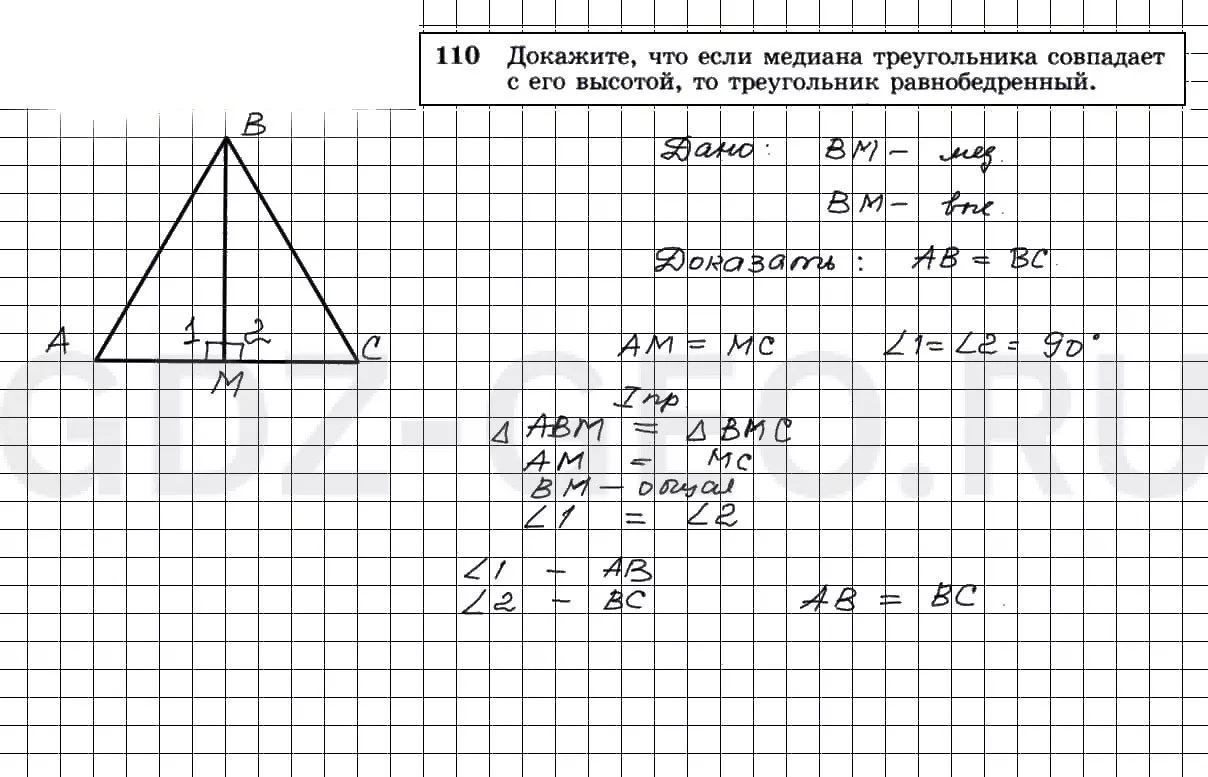 110 Докажите, что если медиана треугольника совпадает
с его высотой, то треугольник равнобедренный.
B
Дано: BM – мед.
BM – выс.
Доказать: AB = BC.
A 1 2 C
M
AM = MC ∠1 = ∠2 = 90°
I пр
△ ABM = △ BMC
AM = MC
BM – общая
∠1 = ∠2
∠1 – AB
∠2 – BC AB = BC.
GDZ-GEO.RU